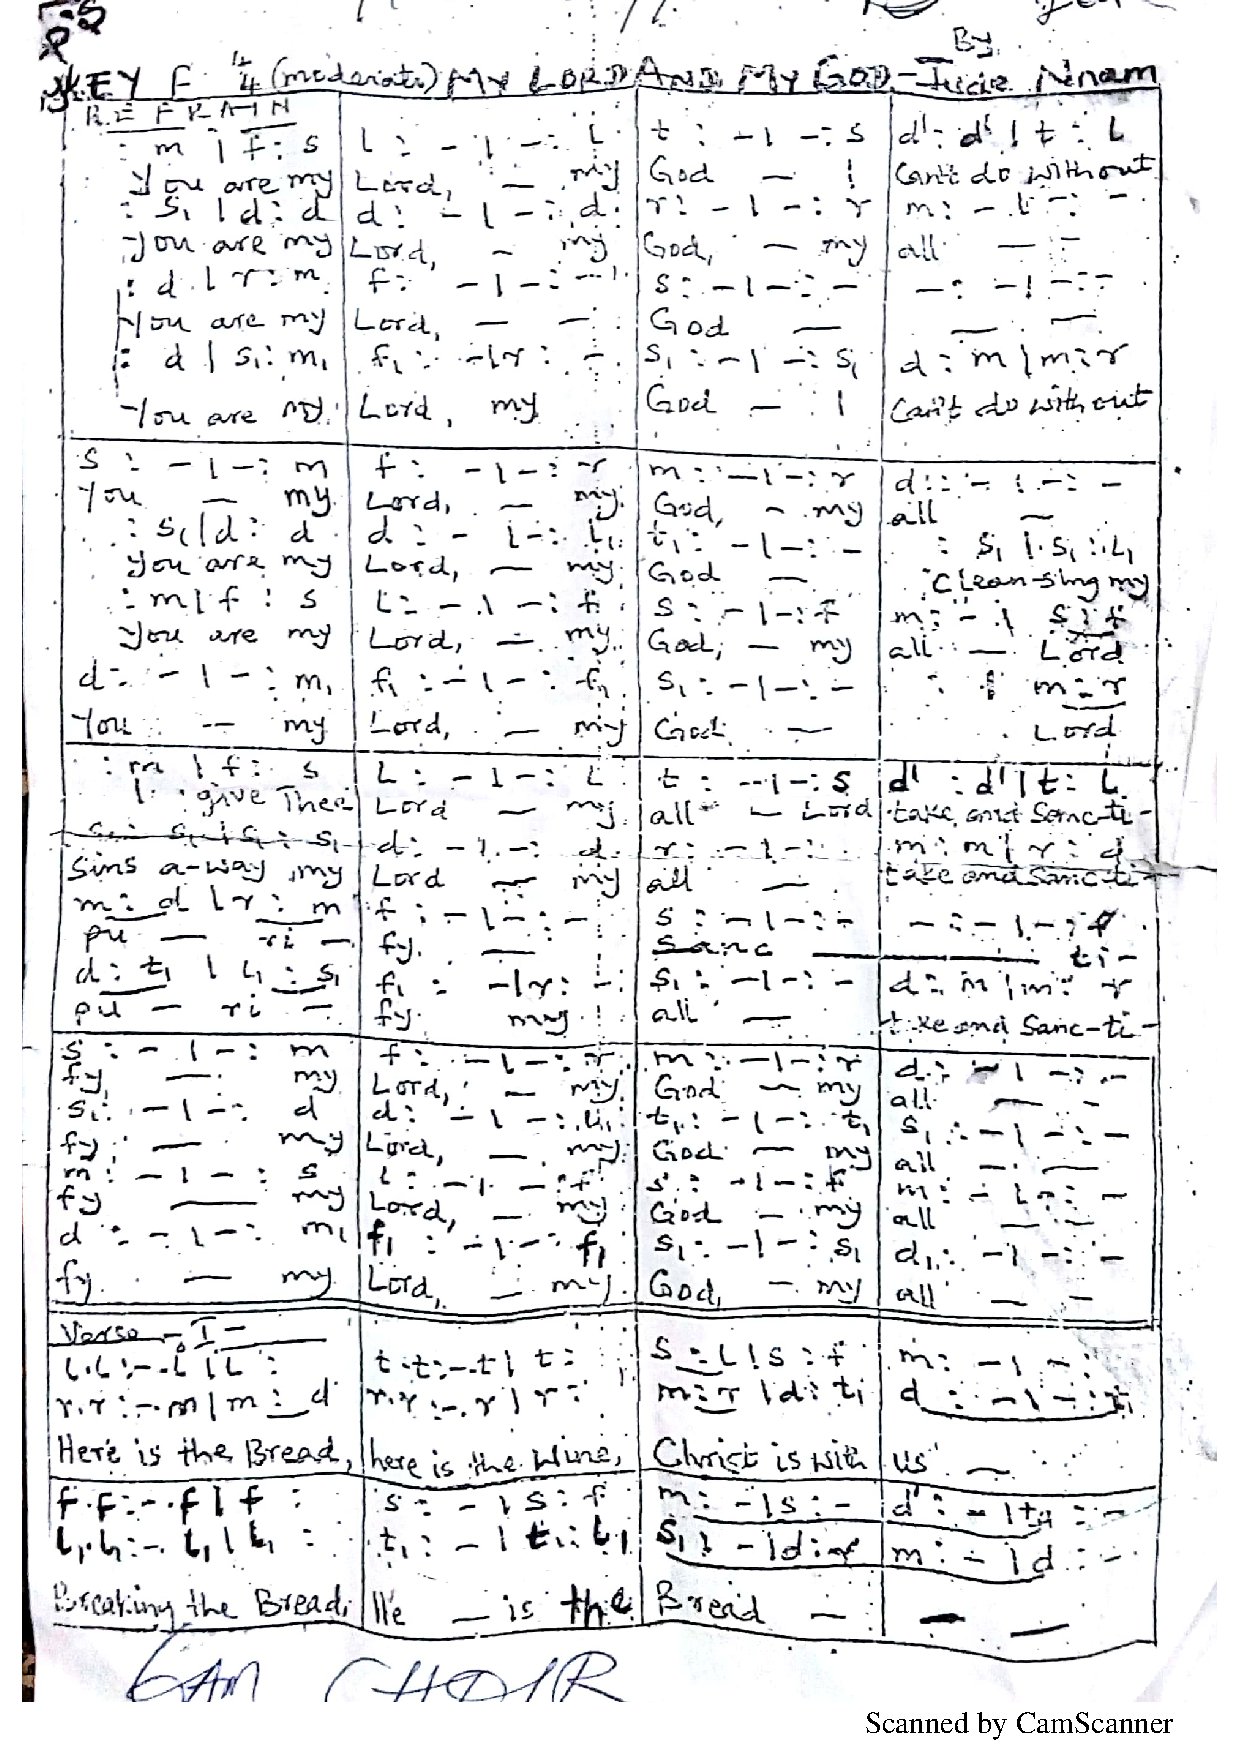 KEY F 4/4 (moderate) MY LORD AND MY GOD - By Jude Nnam
REFRAIN
: m | f : s   l : - | - : l   t : - | - : s   d' : d' | t : l
You are my Lord, — my God — ! Can't do without
: s₁ | d : d   d : - | - : d   r : - | - : r   m : - | - : -
You are my Lord, — my God, — my all — -
: d | r : m   f : - | - : -   s : - | - : -   - : - | - : -
You are my Lord, — — God — — —
: d | s₁ : m₁   f₁ : - | r : -   s₁ : - | - : s₁   d : m | m : r
You are my Lord, my God — I Can't do without
s : - | - : m   f : - | - : r   m : - | - : r   d : - | - : -
You — my Lord, — my God, — my all —
: s₁ | d : d   d : - | - : l₁   t₁ : - | - : -   : s₁ | s₁ : l₁
You are my Lord, — my God — Clean-sing my
: m | f : s   l : - | - : f   s : - | - : f   m : - | s : f
You are my Lord, — my God, — my all — Lord
d : - | - : m₁   f₁ : - | - : f₁   s₁ : - | - : -   : | m : r
You — my Lord, — my God — Lord
: m | f : s   l : - | - : l   t : - | - : s   d' : d' | t : l
I give Thee Lord — my all — Lord take and Sanc-ti-
s₁ : s₁ | s₁ : s₁   d : - | - : d   r : - | - : -   m : m | r : d
Sins a-way my Lord — my all — take and Sanc-ti-
m : d | r : m   f : - | - : -   s : - | - : -   - : - | - : f
pu — ri — fy. — Sanc ti-
d : t₁ | l₁ : s₁   f₁ : - | r : -   s₁ : - | - : -   d : m | m : r
pu — ri — fy my all — take and Sanc-ti-
s : - | - : m   f : - | - : r   m : - | - : r   d : - | - : -
fy — my Lord, — my God — my all — -
s₁ : - | - : d   d : - | - : l₁   t₁ : - | - : t₁   s₁ : - | - : -
fy, — my Lord, — my God — my all — —
m : - | - : s   l : - | - : f   s : - | - : f   m : - | - : -
fy — my Lord, — my God — my all — -
d : - | - : m₁   f₁ : - | - : f₁   s₁ : - | - : s₁   d₁ : - | - : -
fy. — my Lord, — my God, — my all — —
Verse - I -
l.l : -.l | l :   t.t : -.t | t :   s : l | s : f   m : - | - :
r.r : -.m | m : d   r.r : -.r | r :   m : r | d : t₁   d : - | - : t₁
Here is the Bread, here is the Wine, Christ is with us —
f.f : -.f | f :   s : - | s : f   m : - | s : -   d' : - | t₁ : -
l₁.l₁ : -.l₁ | l₁ :   t₁ : - | t₁ : l₁   s₁ : - | d : r   m : - | d : -
Breaking the Bread, He — is the Bread — — —
6AM CHOIR
Scanned by CamScanner